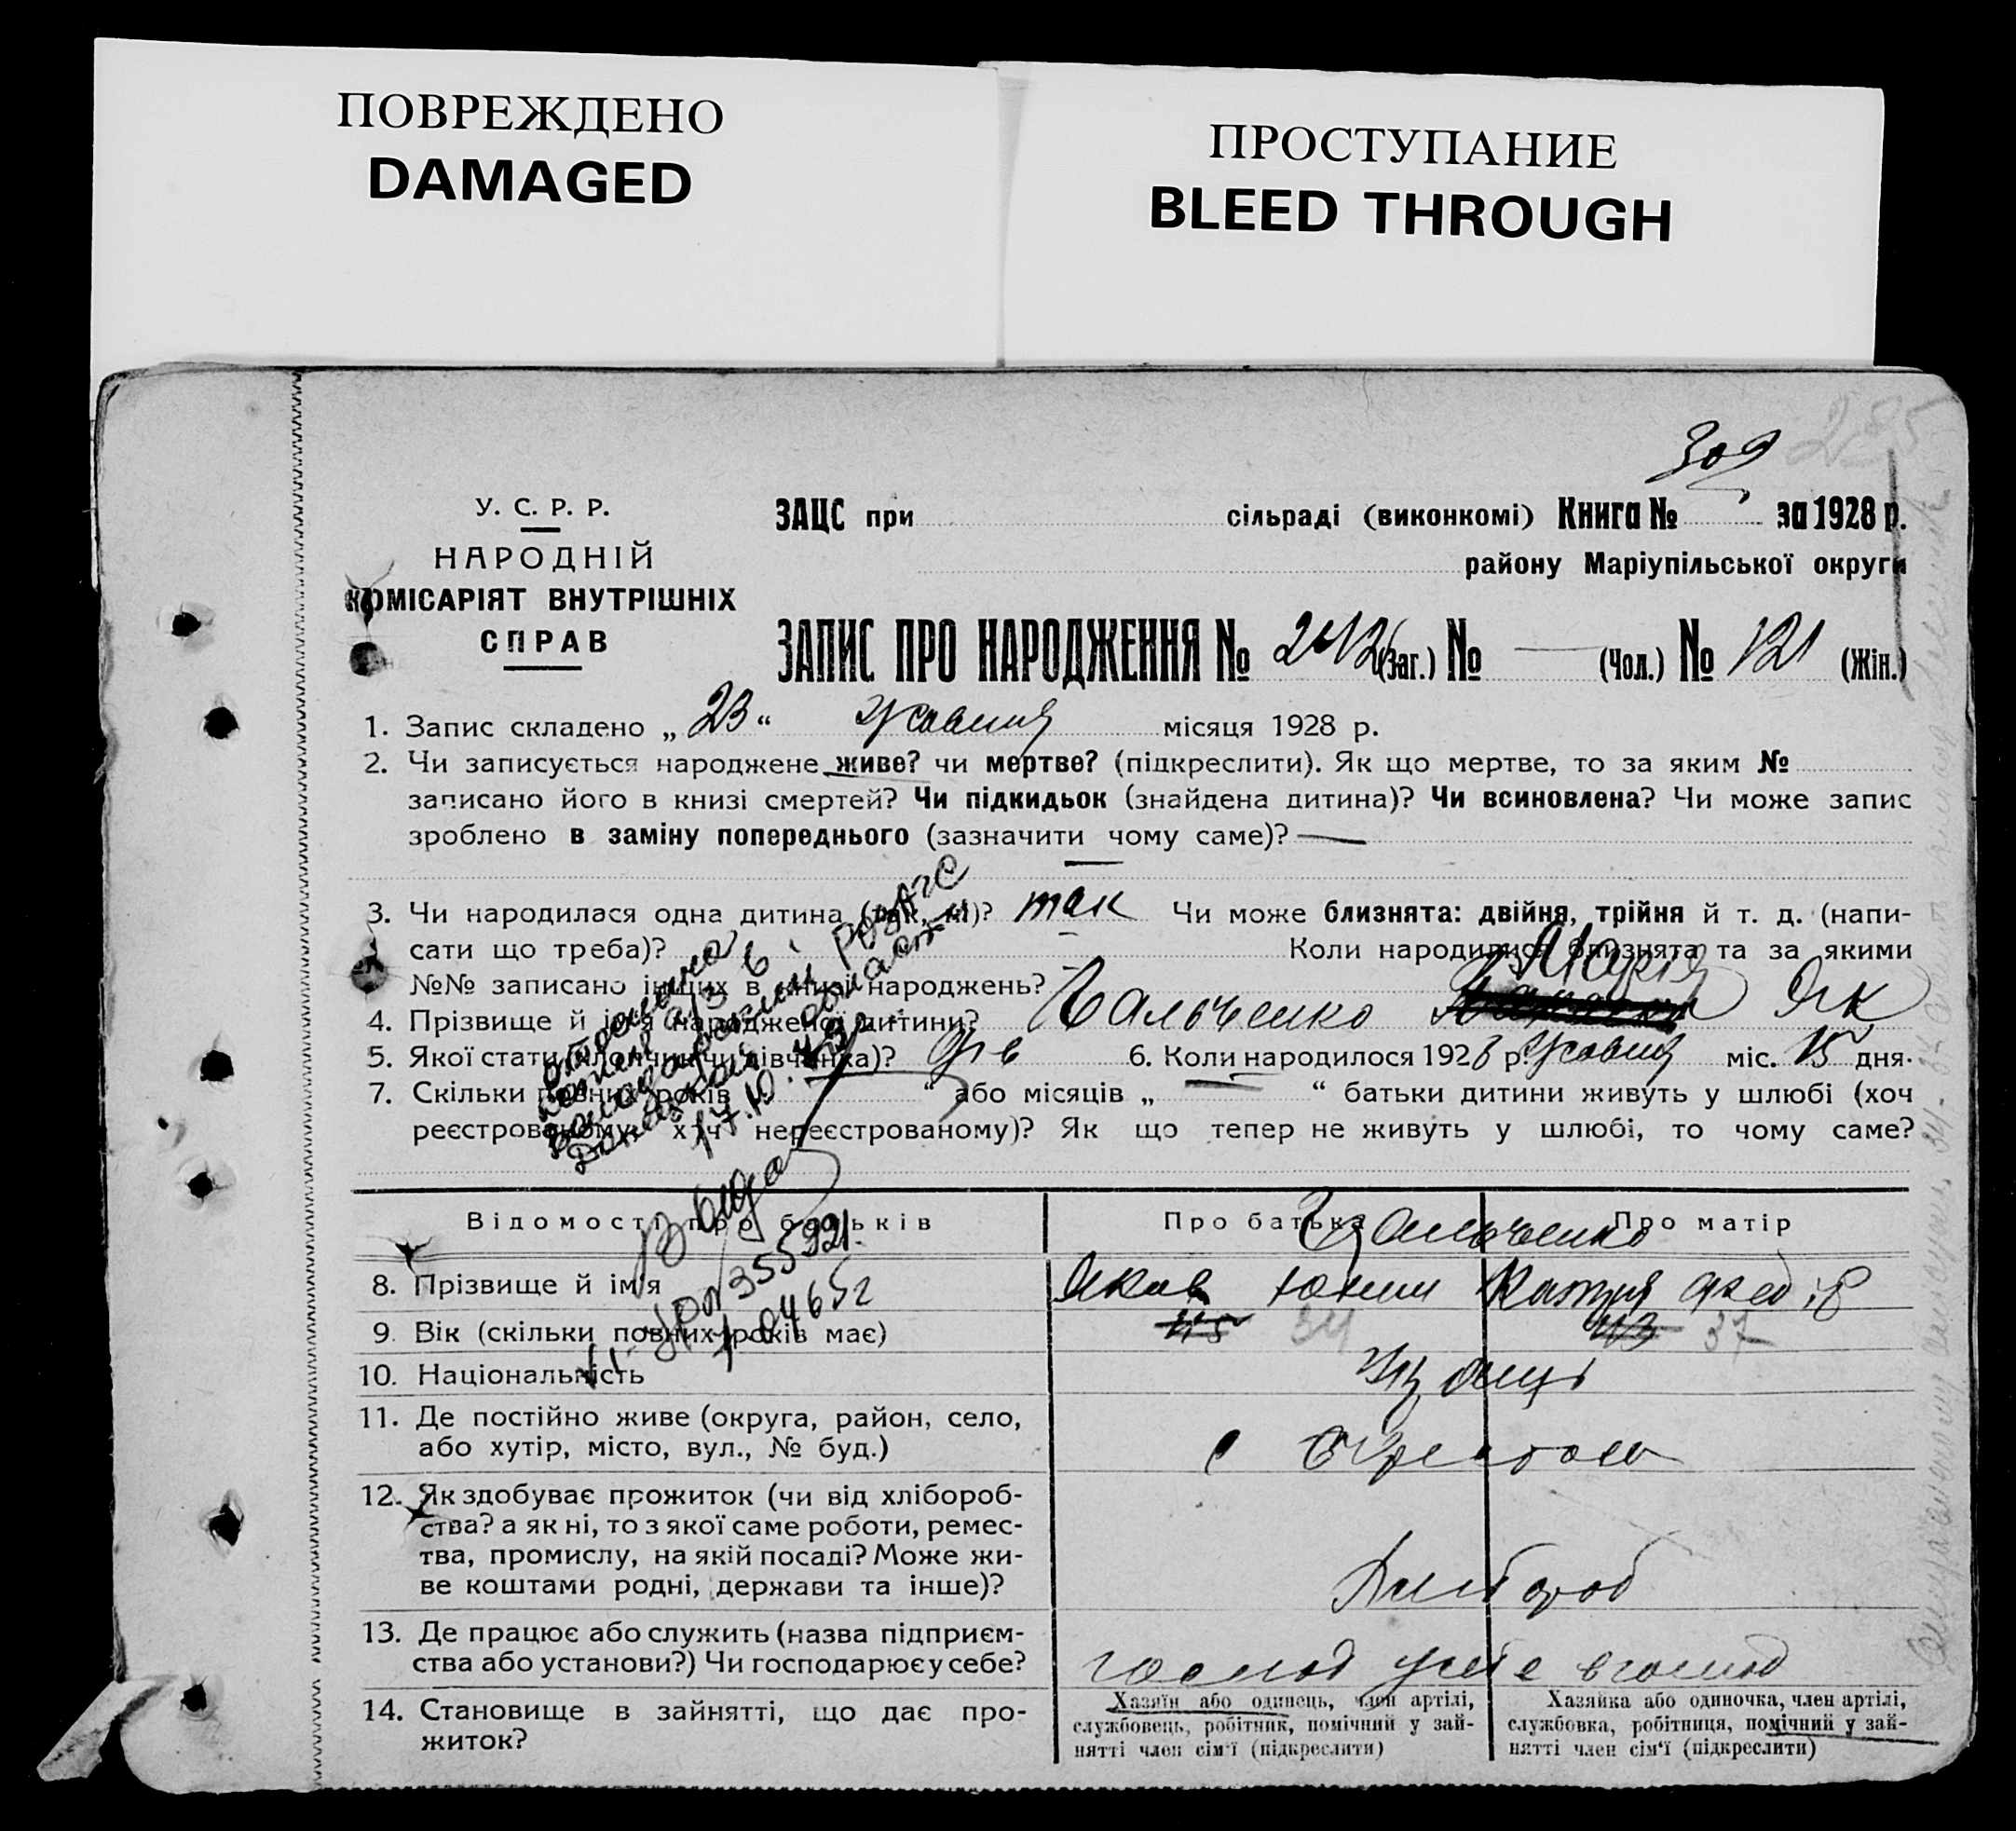 ПОВРЕЖДЕНО
DAMAGED
ПРОСТУПАНИЕ
BLEED THROUGH
309
285
У. С. Р. Р.
НАРОДНІЙ
КОМІСАРІЯТ ВНУТРІШНІХ
СПРАВ
ЗАЦС при сільраді (виконкомі) Книга № за 1928 р.
району Маріупільської округи
ЗАПИС ПРО НАРОДЖЕННЯ № (заг.) № — (Чол.) № 121 (Жін.)
1. Запис складено „ 23 “ жовтня місяця 1928 р.
2. Чи записується народжене живе? чи мертве? (підкреслити). Як що мертве, то за яким №
записано його в книзі смертей? Чи підкидьок (знайдена дитина)? Чи всиновлена? Чи може запис
зроблено в заміну попереднього (зазначити чому саме)? —
3. Чи народилася одна дитина (так, ні)? так Чи може близнята: двійня, трійня й т. д. (напи-
сати що треба)? Коли народилися близнята та за якими
№№ записано інших в книзі народжень?
Марія
4. Прізвище й ім'я народженої дитини? Гальченко Як
5. Якої стати (хлопчик чи дівчинка)? дів 6. Коли народилося 1928 р. жовтня міс. 15 дня.
7. Скільки повних років „ “ або місяців „ — “ батьки дитини живуть у шлюбі (хоч
реєстрованому, хоч нереєстрованому)? Як що тепер не живуть у шлюбі, то чому саме?
17.10.
Відомості про батьків
Про батька
Про матір
Гальченко
8. Прізвище й ім'я
Яков Катря Фед
9. Вік (скільки повних років має)
45 54 43 37
10. Національність
11. Де постійно живе (округа, район, село,
або хутір, місто, вул., № буд.)
с
12. Як здобуває прожиток (чи від хлібороб-
ства? а як ні, то з якої саме роботи, ремес-
тва, промислу, на якій посаді? Може жи-
ве коштами родні, держави та інше)?
Хлібороб
13. Де працює або служить (назва підприєм-
ства або установи?) Чи господарює у себе?
господ у себе в господ
14. Становище в зайнятті, що дає про-
житок?
Хазяїн або одинець, член артілі,
службовець, робітник, помічний у зай-
нятті член сім'ї (підкреслити)
Хазяйка або одиночка, член артілі,
службовка, робітниця, помічний у зай-
нятті член сім'ї (підкреслити)